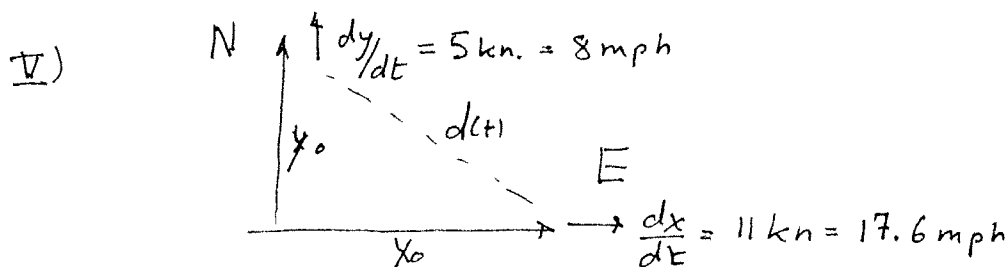 V)
N dy/dt = 5 kn. = 8 mph
y₀
d(t)
E
dx/dt = 11 kn = 17.6 mph
x₀